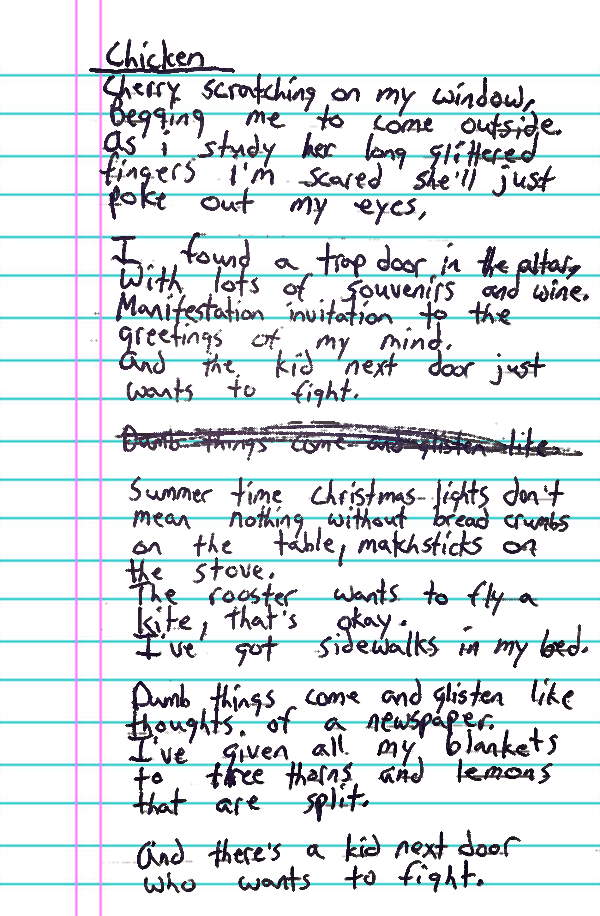 Chicken
Cherry scratching on my window,
Begging me to come outside.
As i study her long glittered
fingers I'm scared she'll just
poke out my eyes,
I found a trap door in the altar,
With lots of souvenirs and wine.
Manifestation invitation to the
greetings of my mind.
And the kid next door just
wants to fight.
Dumb things come and glisten like
Summer time christmas lights don't
mean nothing without bread crumbs
on the table, matchsticks on
the stove.
The rooster wants to fly a
kite, that's okay.
I've got sidewalks in my bed.
Dumb things come and glisten like
thoughts. of a newspaper.
I've given all my blankets
to tree thorns and lemons
that are split.
And there's a kid next door
who wants to fight.